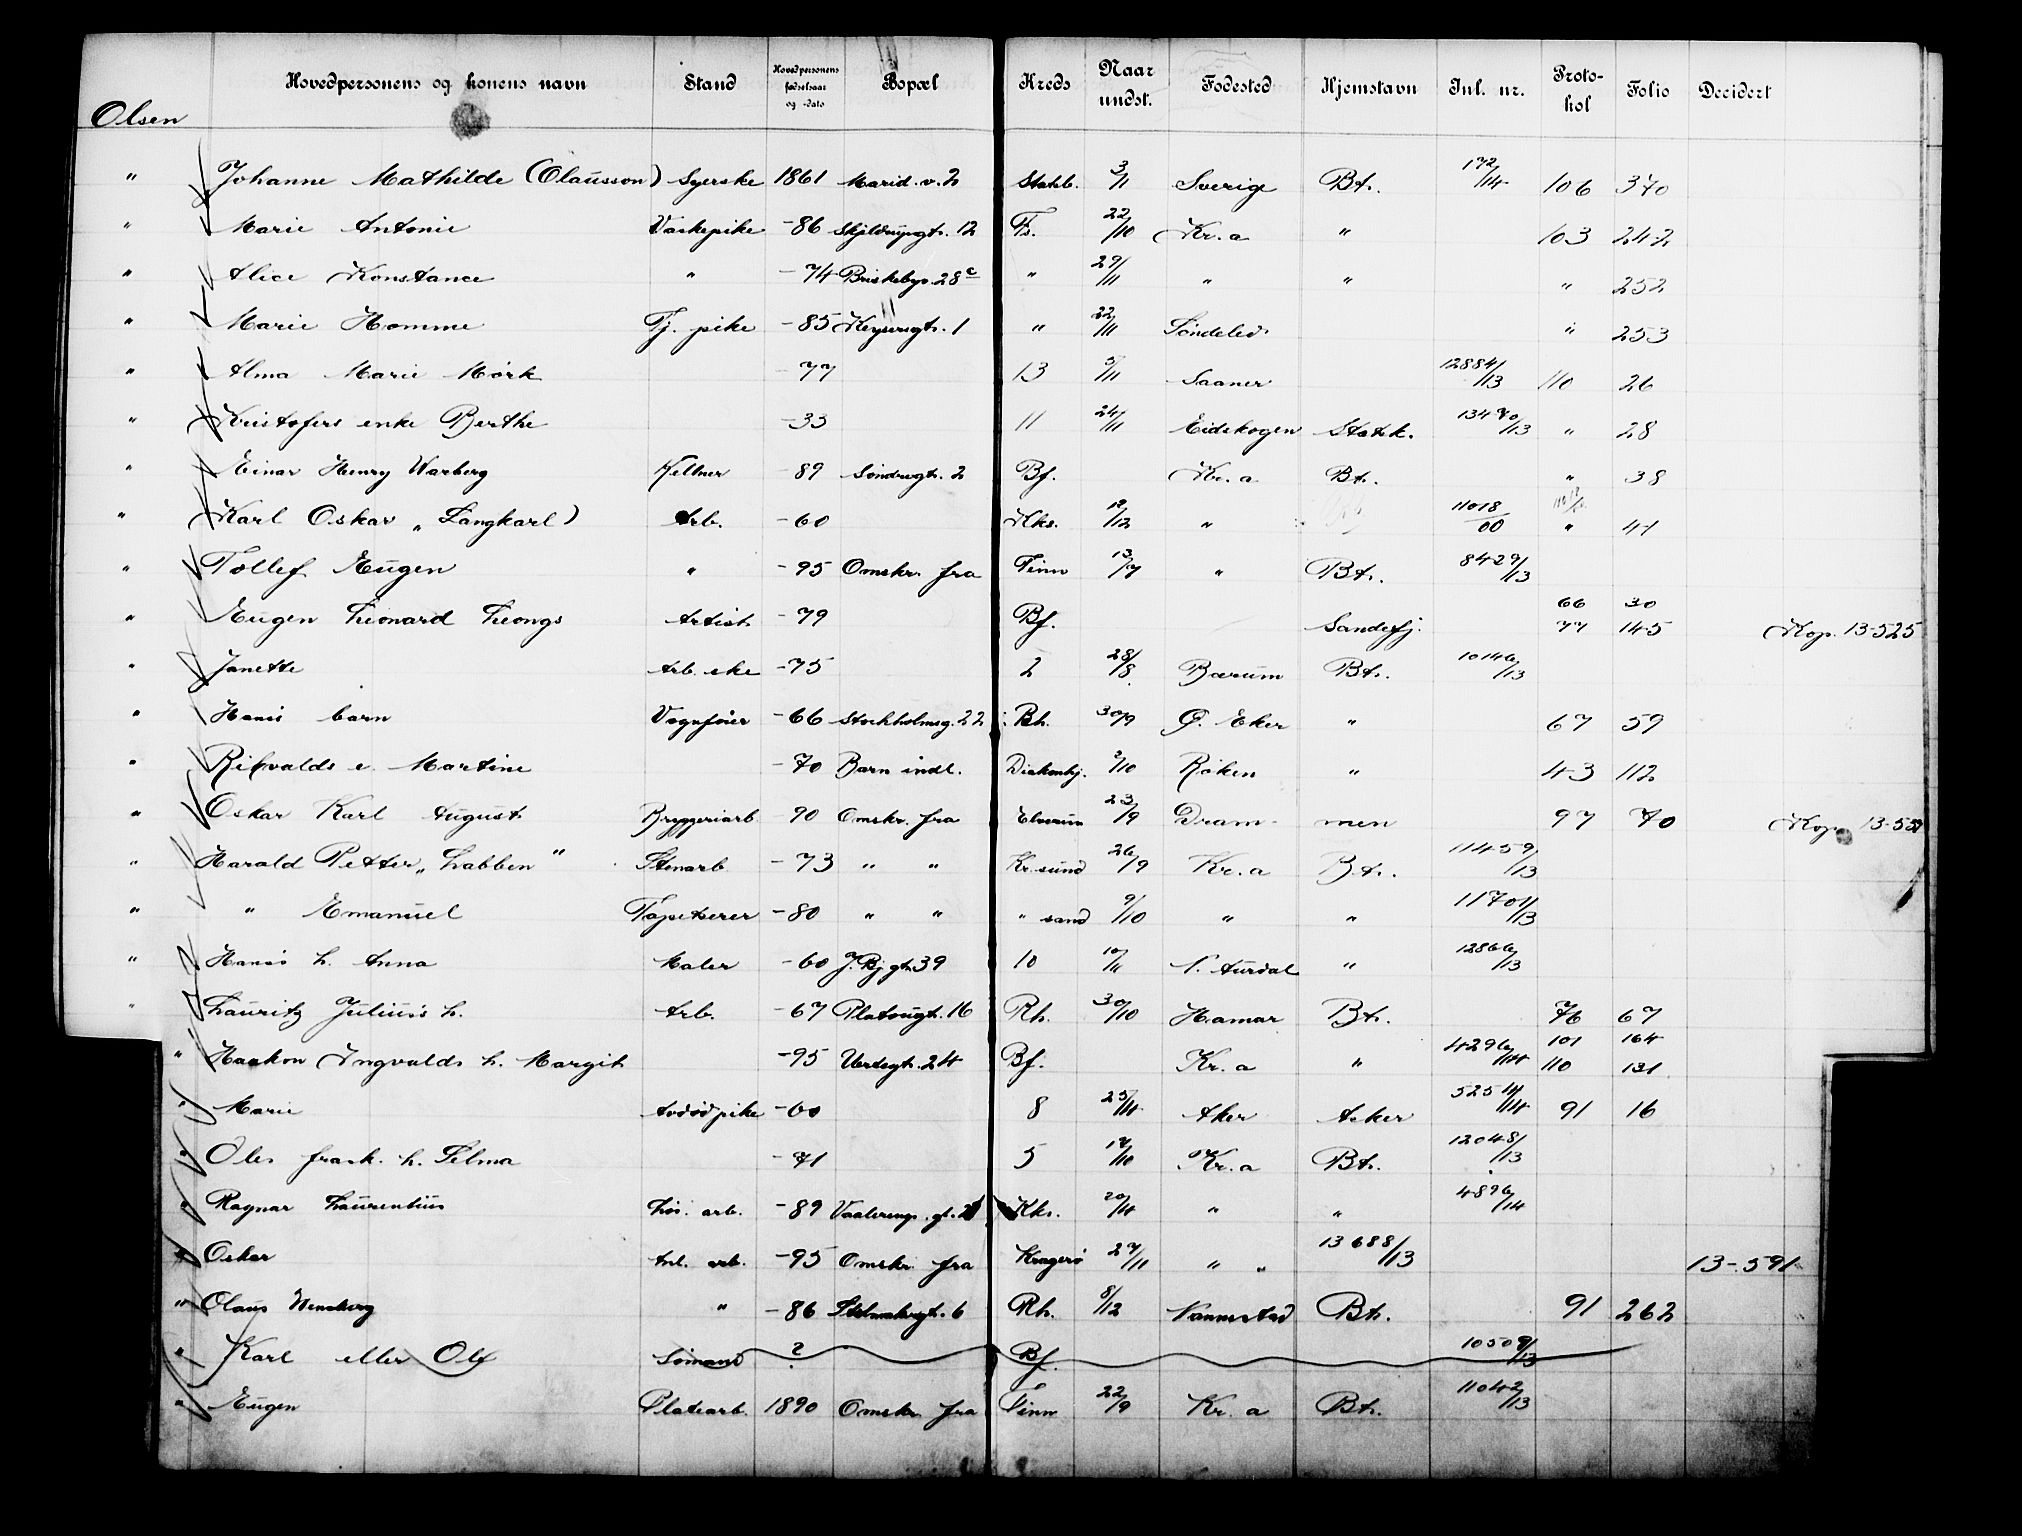 Hovedpersonens og konens navn Stand Hovedpersonens fødselsaar og -dato Bopæl Kreds Naar undst. Fødested Hjemstavn Inl. nr. Protokol Folio Decidert
Olsen
" Johanne Mathilde (Olausson) Syerske 1861 Marid. v. 2 Stakb. 3/1 Sverige Bt. 172/14 106 370
" Marie Antonie Vaskepike -86 Skjeldrupsgt. 12 Fs. 22/10 Kr. a " 103 242
" Alice Konstance " -74 Briskebyv. 28c " 29/11 " " " 252
" Marie Homme Tj. pike -85 Keysersgt. 1 " 22/11 Søndeled " 253
" Alma Marie Mørk -77 13 5/11 Saaner 12884/13 110 26
" Kristofers enke Berthe -33 11 24/11 Eidskogen Statsk. 13470/13 " 28
" Einar Henry Warberg Kellner -89 Søndregt. 2 Bf. Kr. a Bt. " 38
" Karl Oskar „Langkarl) Arb. -60 Kks. 12/12 " 11018/00 " 41
" Tollef Eugen " -95 Omskr. fra Tinn 13/7 " Bt. 8429/13
" Eugen Leonard Leongs Artist -79 Bf. Sandefj. 66 30
77 145 Kop. 13-525
" Janette Arb. ske -75 2 28/8 Bærum Bt. 10146/13
" Hans's barn Vognfører -66 Stockholmsg. 22 Bh. 30/9 Ø. Eker " 67 59
" Rikvalds e. Martine -70 Barn indl. Diakonhj. 2/10 Røken " 43 112
" Oskar Karl August Bryggeriarb -90 Omskr. fra Elverum 23/9 Drammen 97 70 Kop. 13-55
" Harald Petter „Labben" Stenarb -73 " " Kr. sund 26/9 Kr. a Bt. 11459/13
" " Emanuel Tapetserer -80 " " " sand 9/10 " " 11701/13
" Hans's h. Anna Maler -60 J. Bj gt 39 10 10/11 N. Aurdal " 12866/13
" Lauritz Julius's h. Arb. -67 Platousgt. 16 Rh. 30/10 Hamar Bt. 76 67
" Haakon Ingvalds h. Margit -95 Verdsgt. 24 Bf. Kr. a " 4296/14 101 164
110 131
" Marie Avdød pike -60 8 25/4 Aker Asker 5254/14 91 16
" Oles frask. h. Selma -71 5 17/10 Kr. a Bt. 12048/13
" Ragnar Laurentius Løs. arb. -89 Vaalerengs. gt. 2 Kks. 20/4 " " 4896/14
" Oskar Anl. arb. -95 Omskr. fra Kragerø 27/11 " " 13688/13 13-591
" Olaus Wensberg " -86 6 Rh. 8/12 Nannestad Bt. 91 262
" Karl eller Ole Sømand ? Bf. 10509/13
" Eugen Platearb. 1890 Omskr. fra Tinn 22/9 Kr. a Bt. 11042/13